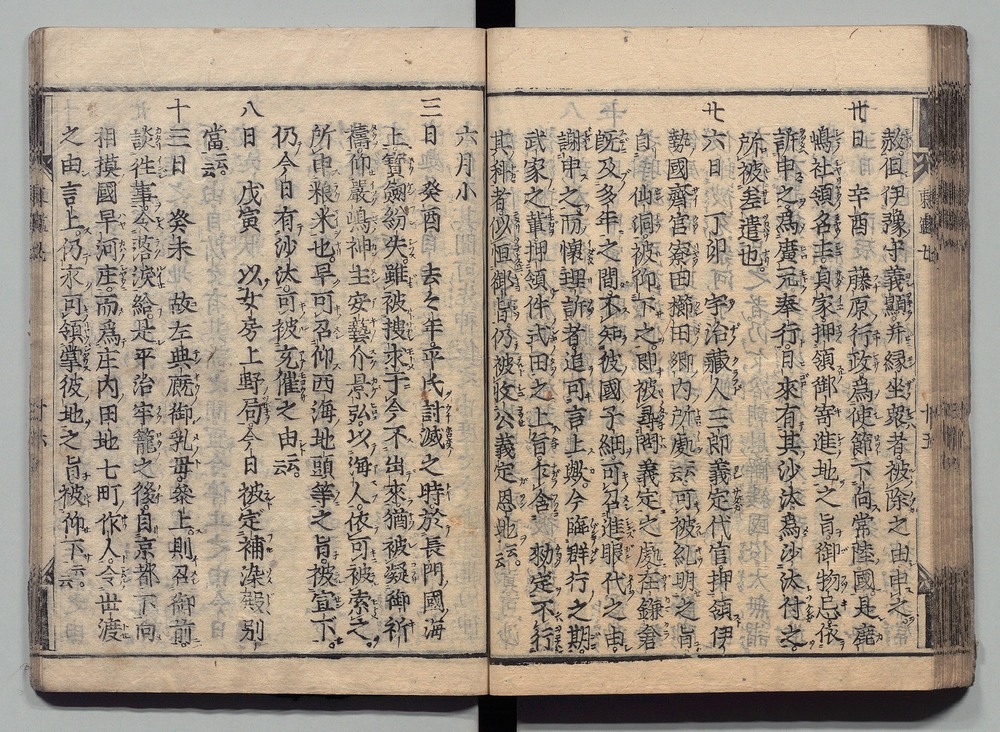 赦徂伊豫守義顯并緣坐衆者被除之由申之
廿日 辛酉 藤原行政為使節下向常陸國是鹿
嶋社領名主貞家押領御寄進地之旨御物忌依
訴申之爲廣元奉行日來有其沙汰爲沙汰付之
所被差遣也
廿六日 丁卯 宇治藏人三郎義定代官押領伊
勢國齋宮寮田櫛田郷内所處云云可被糺明之旨
自 仙洞被仰下之即被尋問義定之處在鎌倉
既及多年之間不知彼國子細可召進眼代之由
謝申之而懷理訴者追可言上歟今臨群行之期
武家之輩押領件式田之上旨不含 勅定不行
其科者似恒御旨仍被收公義定恩地云云
六月小
三日 癸酉 去々年平氏討滅之時於長門國海
上寶劔紛失雖被搜求于今不出來猶被凝御祈
禱仰嚴嶋神主安藝介景弘以海人依可被索之
所申粮米也早可召仰西海地頭等之旨被宣下
仍今日有沙汰可被充催之由云云
八日 戊寅 以女房上野局今日被定補染殿別
當云云
十三日 癸未 故左典厩御乳母參上則召御前
談往事令落淚給是平治牢籠之後自京都下向
相摸國早河庄而爲庄内田地七町作人令世渡
之由言上仍永可領掌彼地之旨被仰下云云
東鑑七
十五
東鑑七
十六